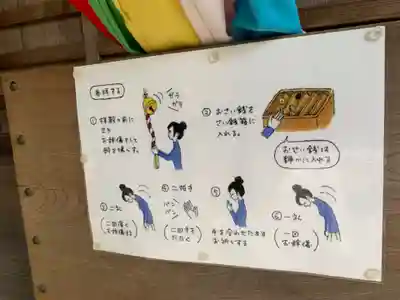 参拝する
ガラ
ガラ
① 拝殿の前に
立ち
お辞儀をして
鈴を鳴らす。
② おさい銭を
さい銭箱に
入れる。
おさい銭は
静かに入れる
③ 二礼
(二回深く
お辞儀)
④ 二拍手
パン
パン
(二回手を
たたく)
⑤
手を合わせたまま
お祈りする
⑥ 一礼
(一回
お辞儀)